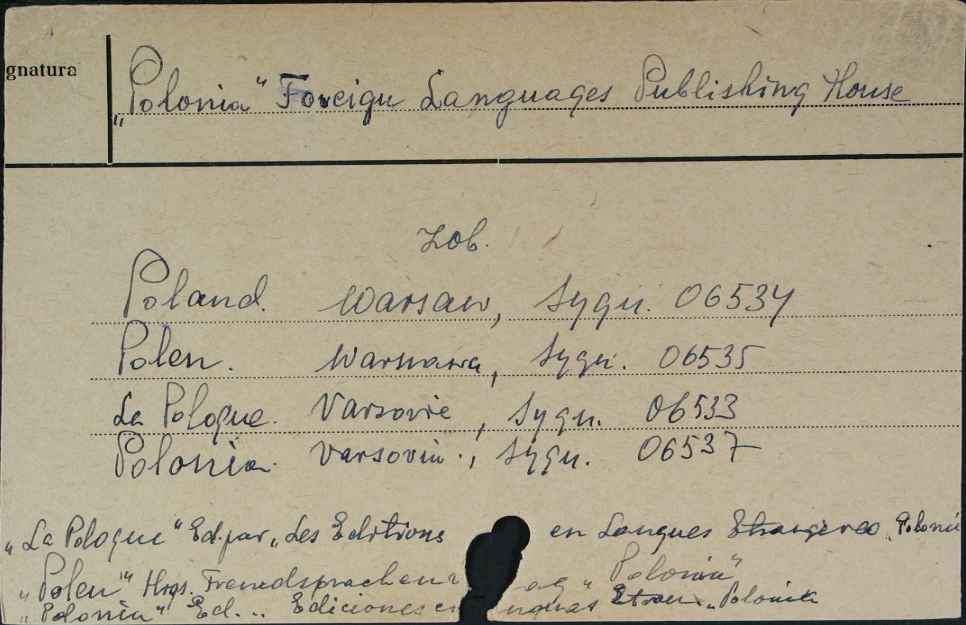 gnatura
„Polonia" Foreign Languages Publishing House
Zob.
Poland. Warsaw, Sygn. 06534
Polen. Warszawa, Sygn. 06535
La Pologne. Varsovie, Sygn. 06533
Polonia. Varsovia., Sygn. 06537
„La Pologne" Ed. par „Les Editions en Langues Etrangeres „Polonia
„Polen" Hrgs. Fremdsprachen ag „Polonia"
„Polonia" Ed... Ediciones en nguas „Polonia